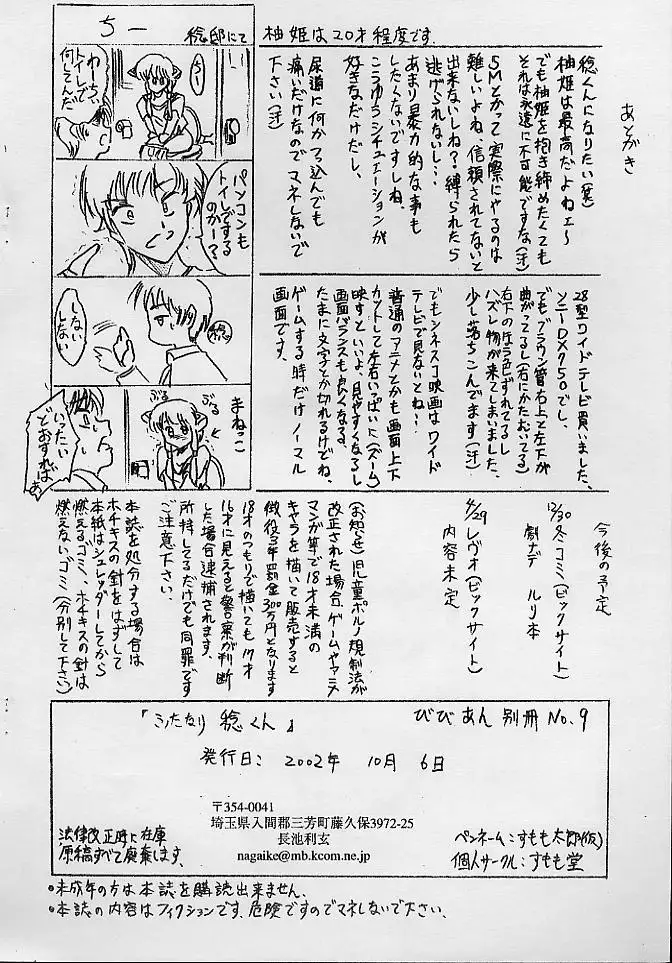 あとがき
稔くんになりたい(爆)
柚姫は最高だよねェ〜
でも柚姫を抱き締めたくても
それは永遠に不可能ですな(汗)
SMとかって実際にやるのは
難しいよね、信頼されてないと
出来ないしね?縛られたら
逃げられないし…
あまり暴力的な事も
したくないですしね、
こうゆうシチュエーションが
好きなだけだし、
尿道に何かつっ込んでも
痛いだけなのでマネしないで
下さい(汗)
柚姫は20才程度です.
稔邸にて
ちー
わーちゃ
トイレで
何してんだ
パンコンも
トイレでする
のかー?
稔
しない
しない
まねっこ
ぷる
ぷる
いったい
どおすれば
28型ワイドテレビ買いました、
ソニーDX750でし、
でもブラウン管右上と左下が
曲がってるし(右にかたむいてる)
右下の圧ラ色ずれてるし
ハズレ物が来てしまいました、
少し落ちこんでます(汗)
でもシネスコ映画はワイド
テレビで見ないとね…
普通のアニメとかも画面上下
カットして左右いっぱいに(ズーム)
映すといいよ、見やすくなるし
画面バランスも良くなる、
たまに文字とか切れるけどね、
ゲームする時だけノーマル
画面です、
今後の予定
12/30冬コミ(ビックサイト)
劇ナデ ルリ本
4/29レヴォ(ビックサイト)
内容未定
(お知らせ)児童ポルノ規制法が
改正された場合、ゲームやアニメ
マンガ等で18才未満の
キャラを描いて販売すると
懲役3年罰金300万円となります
18才のつもりで描いても17才
16才に見えると警察が判断
した場合逮捕されます.
所持してるだけでも同罪です
ご注意下さい.
本誌を処分する場合は
ホチキスの針をはずして
本紙はシュレッダーしてから
燃えるゴミ、ホチキスの針は
燃えないゴミ(分別して下さい)
「ふたなり 稔くん」
びびあん 別冊 No.9
発行日: 2002年 10月 6日
〒354-0041
埼玉県入間郡三芳町藤久保3972-25
長池利玄
nagaike@mb.kcom.ne.jp
法律改正時に在庫
原稿すべて廃棄します.
ペンネーム:すもも太郎(仮)
個人サークル:すもも堂
・未成年の方は本誌を購読出来ません.
・本誌の内容はフィクションです.危険ですのでマネしないで下さい.